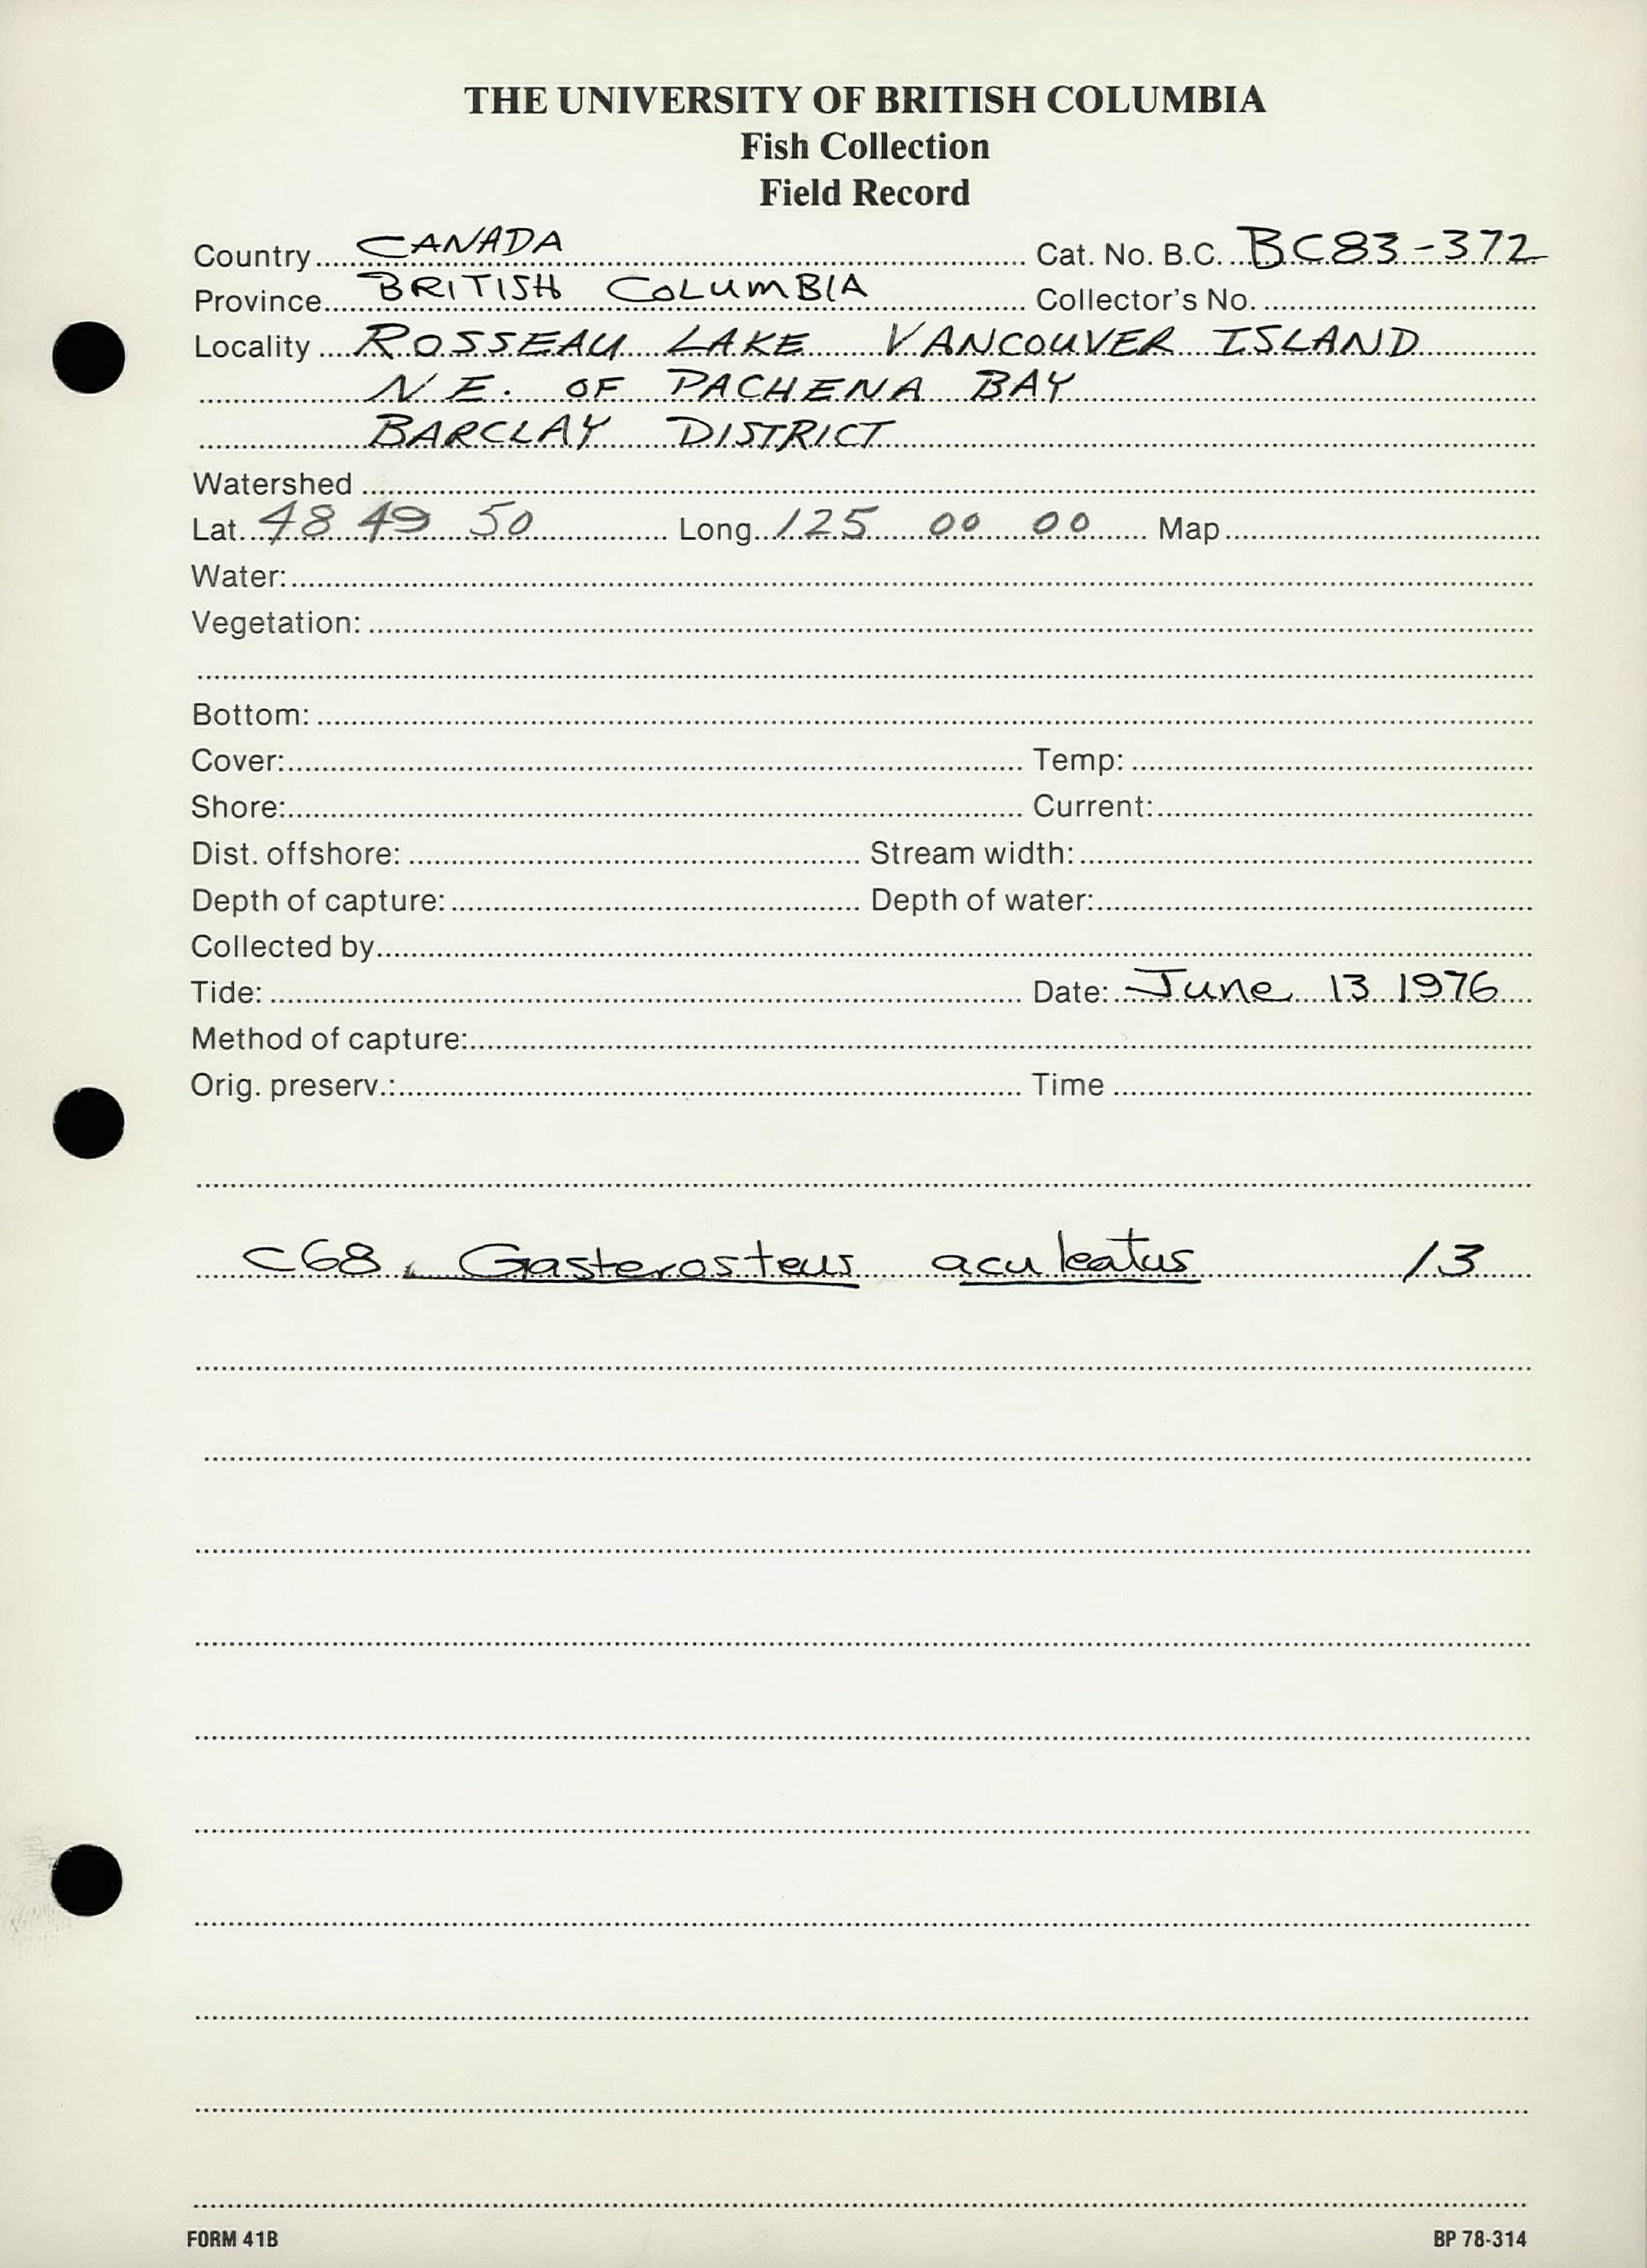 THE UNIVERSITY OF BRITISH COLUMBIA
Fish Collection
Field Record
Country CANADA Cat. No. B.C. BC83-372
Province BRITISH COLUMBIA Collector's No.
Locality ROSSEAU LAKE VANCOUVER ISLAND
N.E. OF PACHENA BAY
BARCLAY DISTRICT
Watershed
Lat. 48 49 50 Long. 125 00 00 Map
Water:
Vegetation:
Bottom:
Cover: Temp:
Shore: Current:
Dist. offshore: Stream width:
Depth of capture: Depth of water:
Collected by
Tide: Date: June 13 1976
Method of capture:
Orig. preserv.: Time
C68. Gasterosteus aculeatus 13
FORM 41B BP 78-314